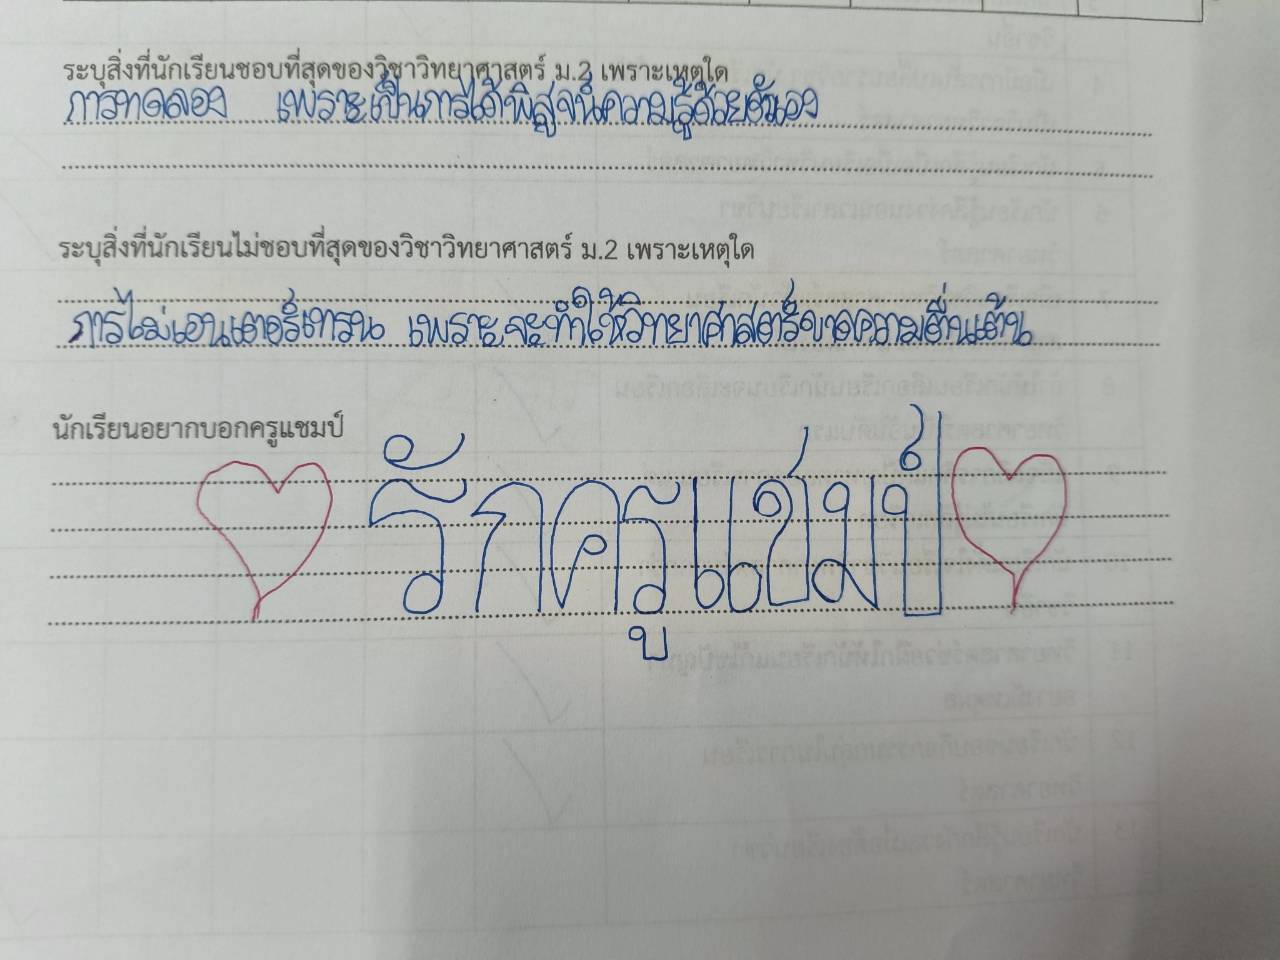 ระบุสิ่งที่นักเรียนชอบที่สุดของวิชาวิทยาศาสตร์ ม.2 เพราะเหตุใด
การทดลอง เพราะเป็นการได้พิสูจน์ความรู้ด้วยตัวเอง
ระบุสิ่งที่นักเรียนไม่ชอบที่สุดของวิชาวิทยาศาสตร์ ม.2 เพราะเหตุใด
การไม่เอนเตอร์เทรน เพราะจะทำให้วิทยาศาสตร์ขาดความตื่นเต้น
นักเรียนอยากบอกครูแชมป์
รักครูแชมป์